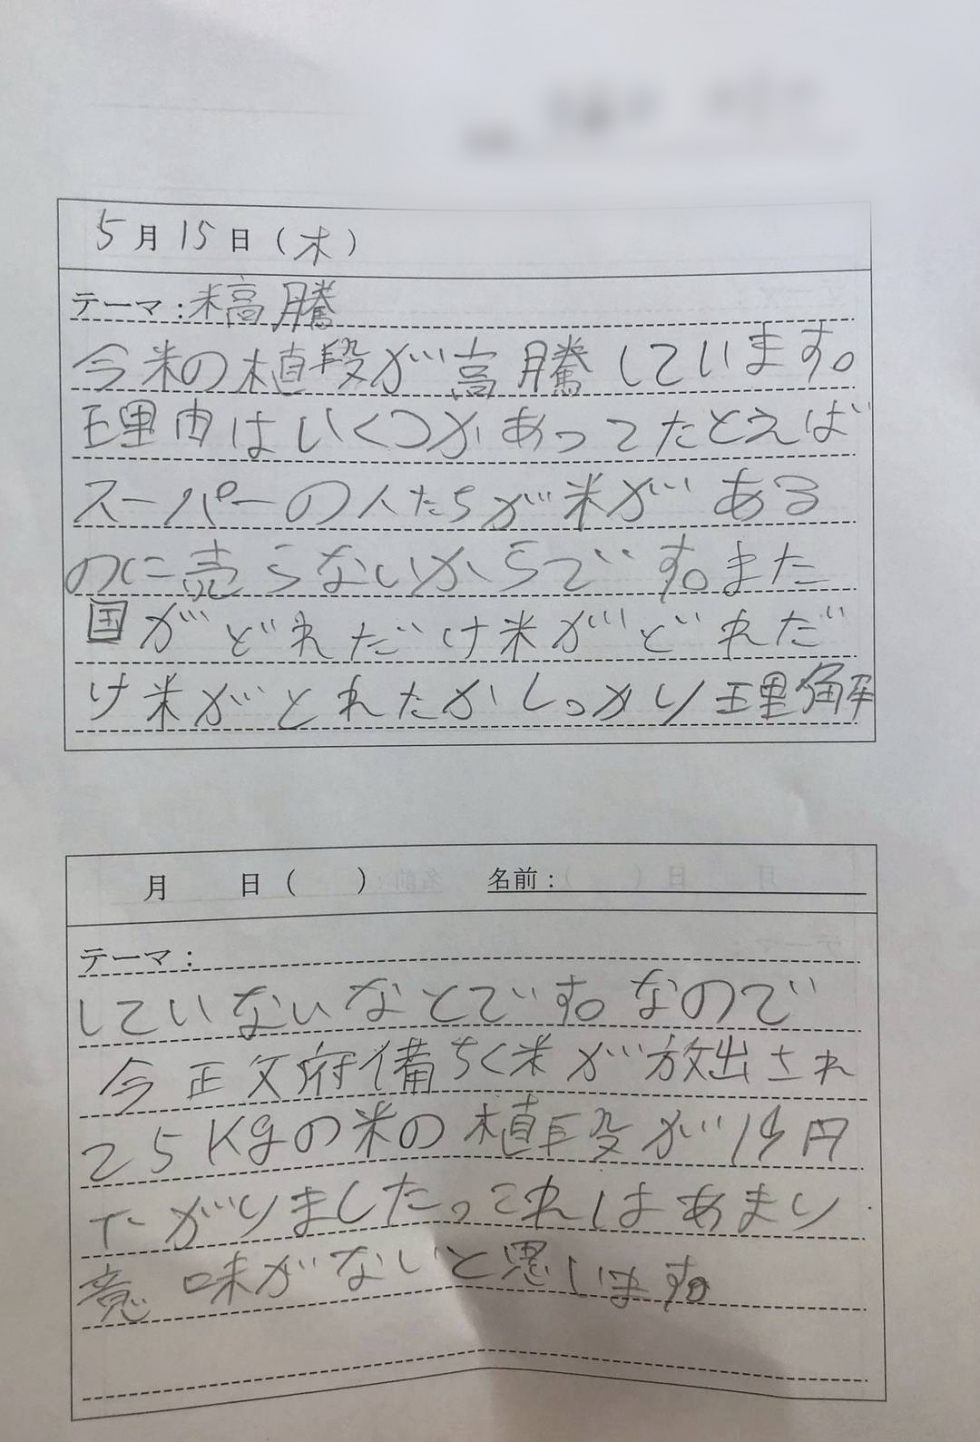 5月15日(木)
テーマ:米高騰
今米の値段が高騰しています。
理由はいくつかあってたとえば
スーパーの人たちが米がある
のに売らないからです。また
国がどれだけ米がどれだ
け米がとれたかしっかり理解
月 日( ) 名前:
テーマ:
していないなとです。なので
今政府備ちく米が放出され
25Kgの米の値段が19円
下がりました。これはあまり
意味がないと思います。